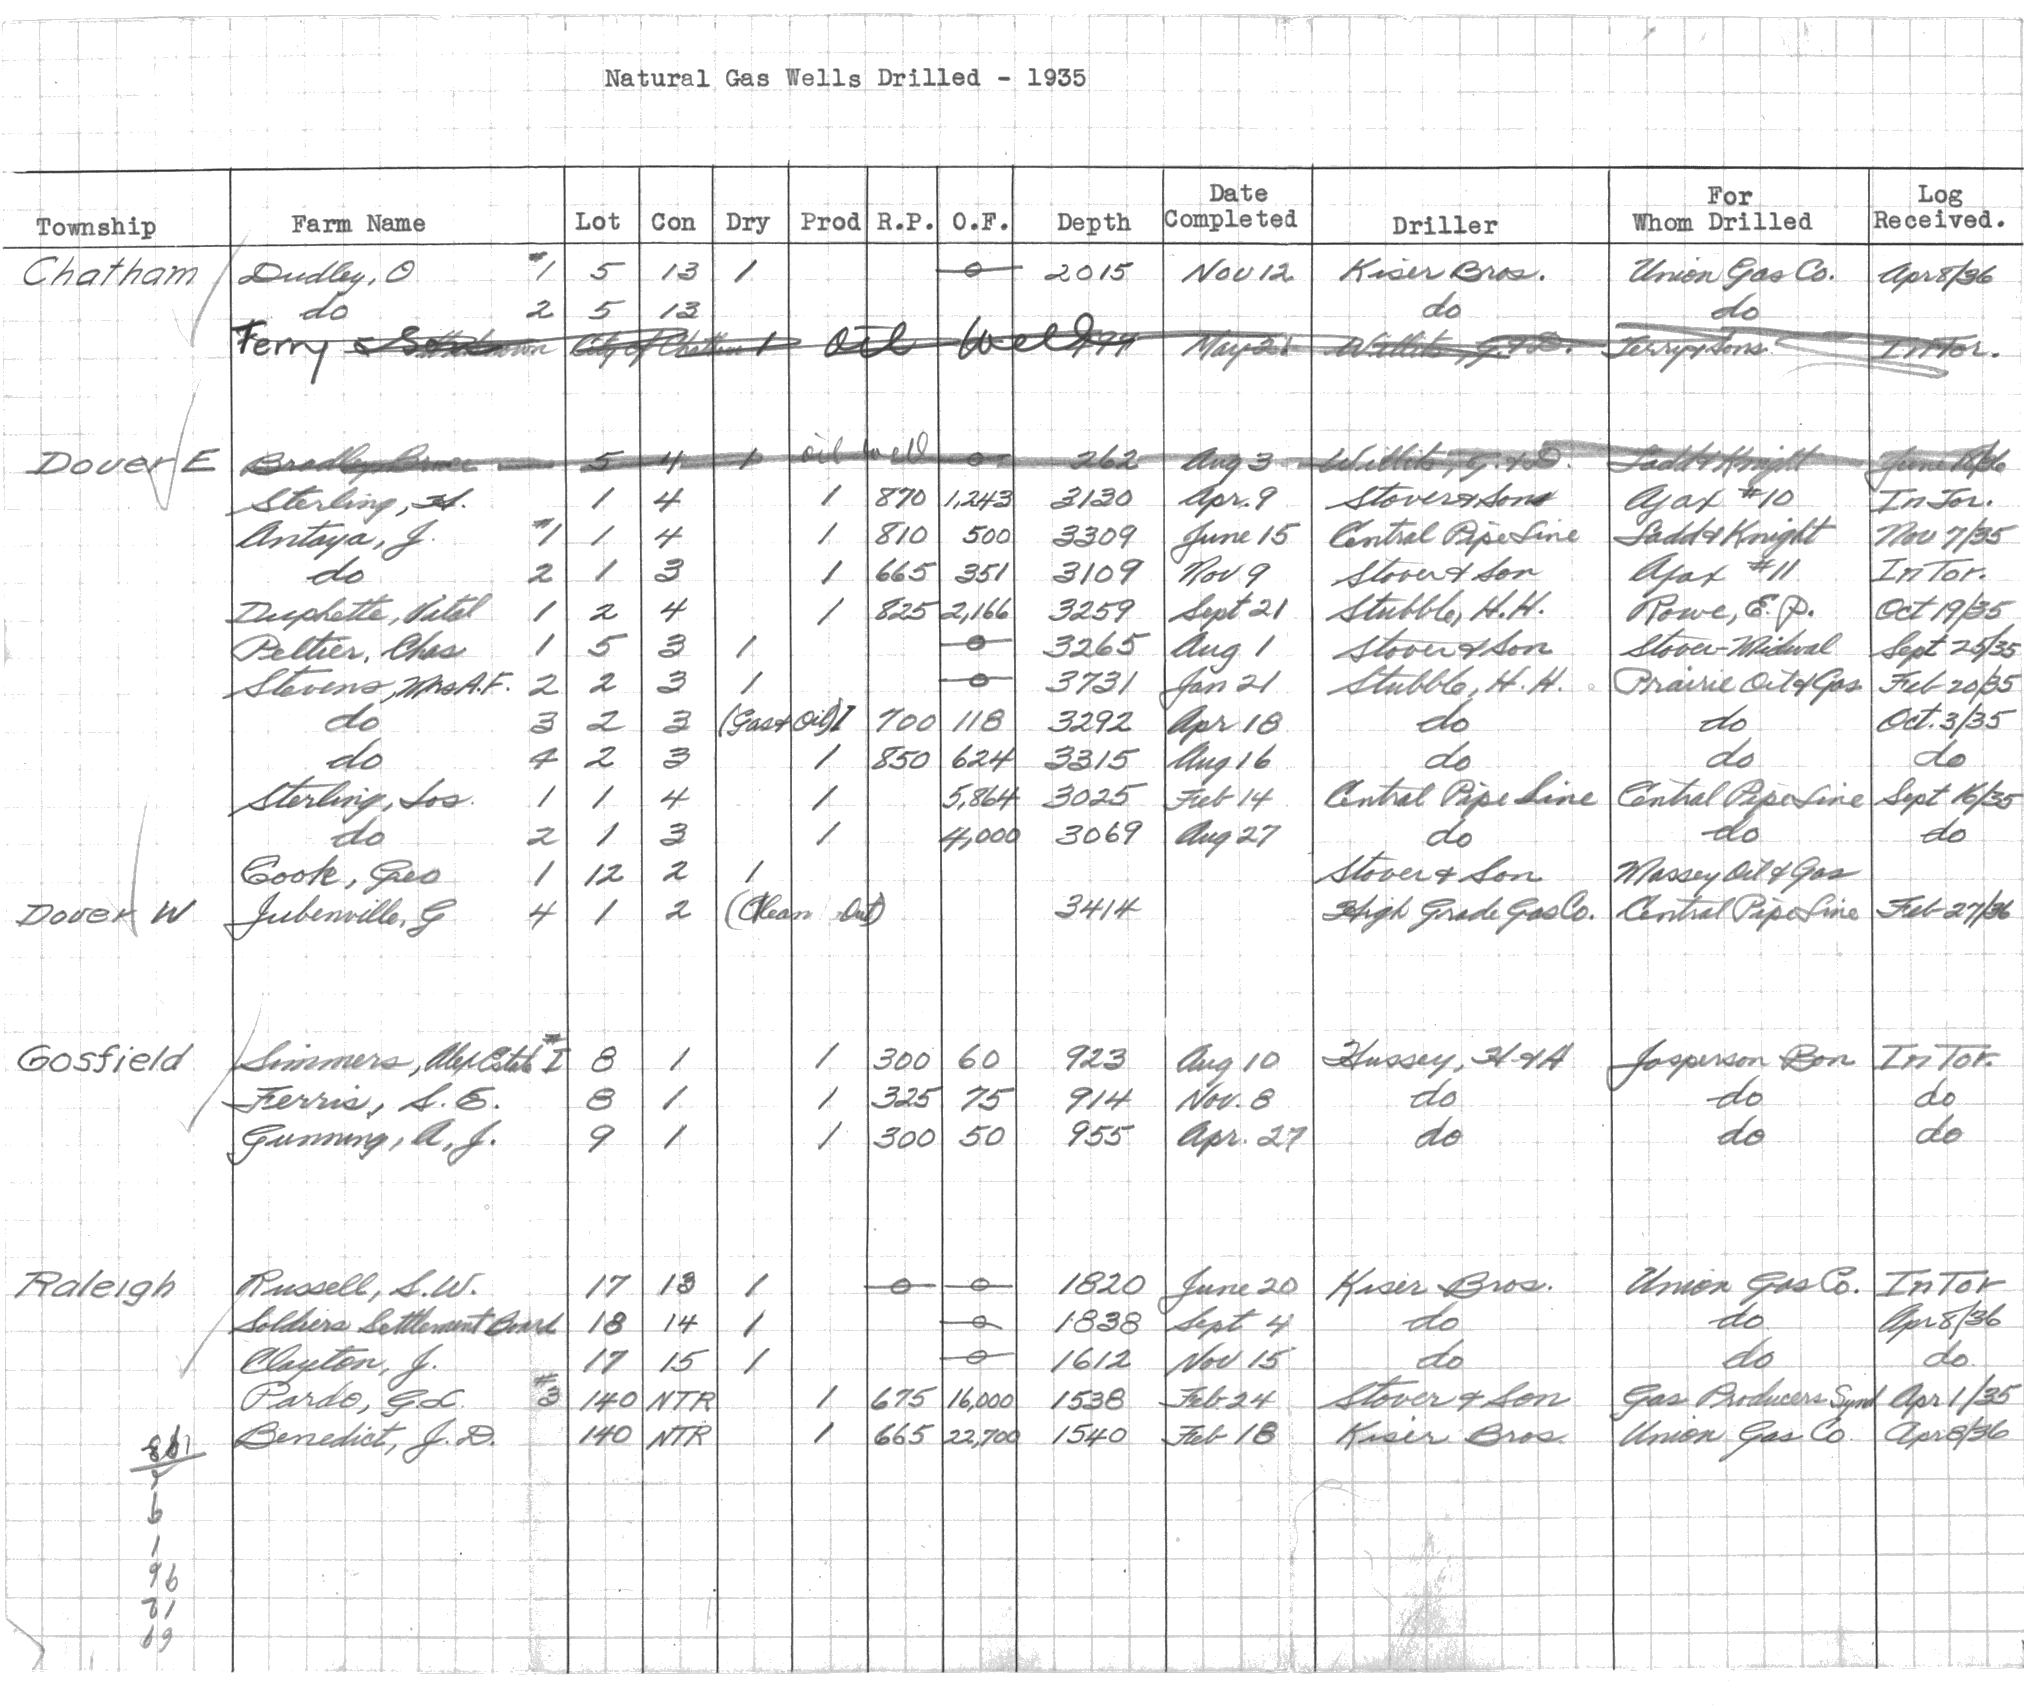 Natural Gas Wells Drilled - 1935
Township Farm Name Lot Con Dry Prod R.P. O.F. Depth Date Completed Driller For Whom Drilled Log Received.
Chatham Dudley, O #1 5 13 1 0 2015 Nov 12 Kiser Bros. Union Gas Co. Apr 8/36
do 2 5 13 do do
Ferry & Son City of Chatham 1 Oil Well May 21 Willits, G. & D. Ferry & Sons In Tor.
Dover E Bradley, Bruce 5 4 1 oil well 0 262 Aug 3 Willits, G. & D. Ladd & Knight June
Sterling, H. 1 4 1 870 1,243 3130 Apr. 9 Stover & Sons Ajax #10 In Tor.
Antaya, J. #1 1 4 1 810 500 3309 June 15 Central Pipe Line Ladd & Knight Nov 7/35
do 2 1 3 1 665 351 3109 Nov 9 Stover & Son Ajax #11 In Tor.
Duphette, Vital 1 2 4 1 825 2,166 3259 Sept 21 Stubble, H. H. Rowe, E. P. Oct 19/35
Peltier, Chas 1 5 3 1 0 3265 Aug 1 Stover & Son Stover-Midwal Sept 25/35
Stevens, Mrs A.F. 2 2 3 1 0 3731 Jan 21 Stubble, H. H. Prairie Oil & Gas Feb 20/35
do 3 2 3 (Gas & Oil) 1 700 118 3292 Apr 18 do do Oct. 3/35
do 4 2 3 1 850 624 3315 Aug 16 do do do
Sterling, Jos. 1 1 4 1 5,864 3025 Feb 14 Central Pipe Line Central Pipe Line Sept 16/35
do 2 1 3 1 4,000 3069 Aug 27 do do do
Cook, Geo 1 12 2 1 Stover & Son Massey Oil & Gas
Dover W Jubenville, G 4 1 2 (Clean Out) 3414 High Grade Gas Co. Central Pipe Line Feb 27/36
Gosfield Simmers, Alex Estate #1 8 1 1 300 60 923 Aug 10 Hussey, H & A Jasperson Bon In Tor.
Ferris, S. E. 8 1 1 325 75 914 Nov. 8 do do do
Gunning, A. J. 9 1 1 300 50 955 Apr. 27 do do do
Raleigh Russell, S. W. 17 13 1 0 0 1820 June 20 Kiser Bros. Union Gas Co. In Tor
Soldiers Settlement Board 18 14 1 0 1838 Sept 4 do do Apr 8/36
Clayton, J. 17 15 1 0 1612 Nov 15 do do do.
Pardo, G L. #3 140 NTR 1 675 16,000 1538 Feb 24 Stover & Son Gas Producers Synd Apr 1/35
Benedict, J. D. 140 NTR 1 665 22,700 1540 Feb 18 Kiser Bros. Union Gas Co Apr 8/36